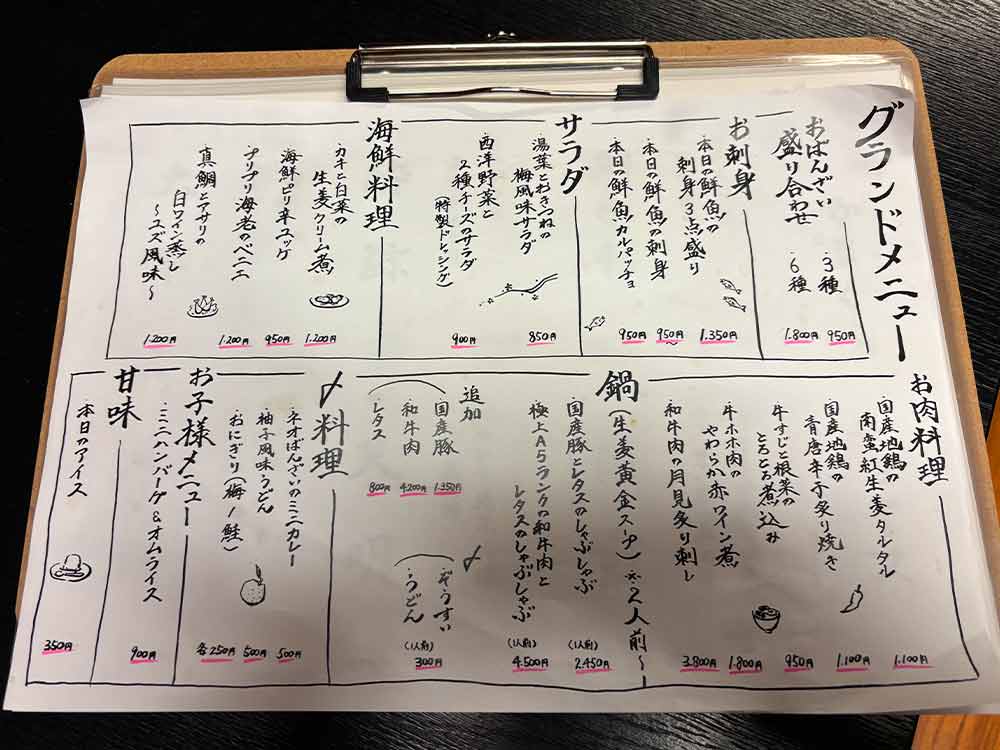 グランドメニュー
おばんざい
盛り合わせ
・3種
・6種
950円
1.800円
お刺身
・本日の鮮魚の
刺身3点盛り
・本日の鮮魚の刺身
・本日の鮮魚カルパッチョ
1.350円
950円〜
950円
サラダ
・湯葉とおきつねの
梅風味サラダ
・西洋野菜と
2種チーズのサラダ
(特製ドレッシング)
850円
900円
海鮮料理
・カキと白菜の
生姜クリーム煮
・海鮮ピリ辛ユッケ
・プリプリ海老のベニエ
・真鯛とアサリの
白ワイン蒸し
〜ユズ風味〜
1.200円
950円
1.200円
1.200円
お肉料理
・国産地鶏の
南蛮紅生姜タルタル
・国産地鶏の
青唐辛子炙り焼き
・牛すじと根菜の
とろとろ煮込み
・牛ホホ肉の
やわらか赤ワイン煮
・和牛肉の月見炙り刺し
1.100円
1.100円
950円
1.800円
3.800円
鍋(生姜黄金スープ)※2人前〜
・国産豚とレタスのしゃぶしゃぶ
・極上A5ランクの和牛肉と
レタスのしゃぶしゃぶ
(1人前)
2.450円
(1人前)
4.500円
追加
・国産豚
・和牛肉
・レタス
1.350円
4.200円
800円
〆
・ぞうすい
・うどん
(1人前)
300円
〆料理
・ネオばんざいのミニカレー
・柚子風味うどん
・おにぎり(梅/鮭)
500円
500円
各250円
お子様メニュー
・ミニハンバーグ&オムライス
900円
甘味
・本日のアイス
350円